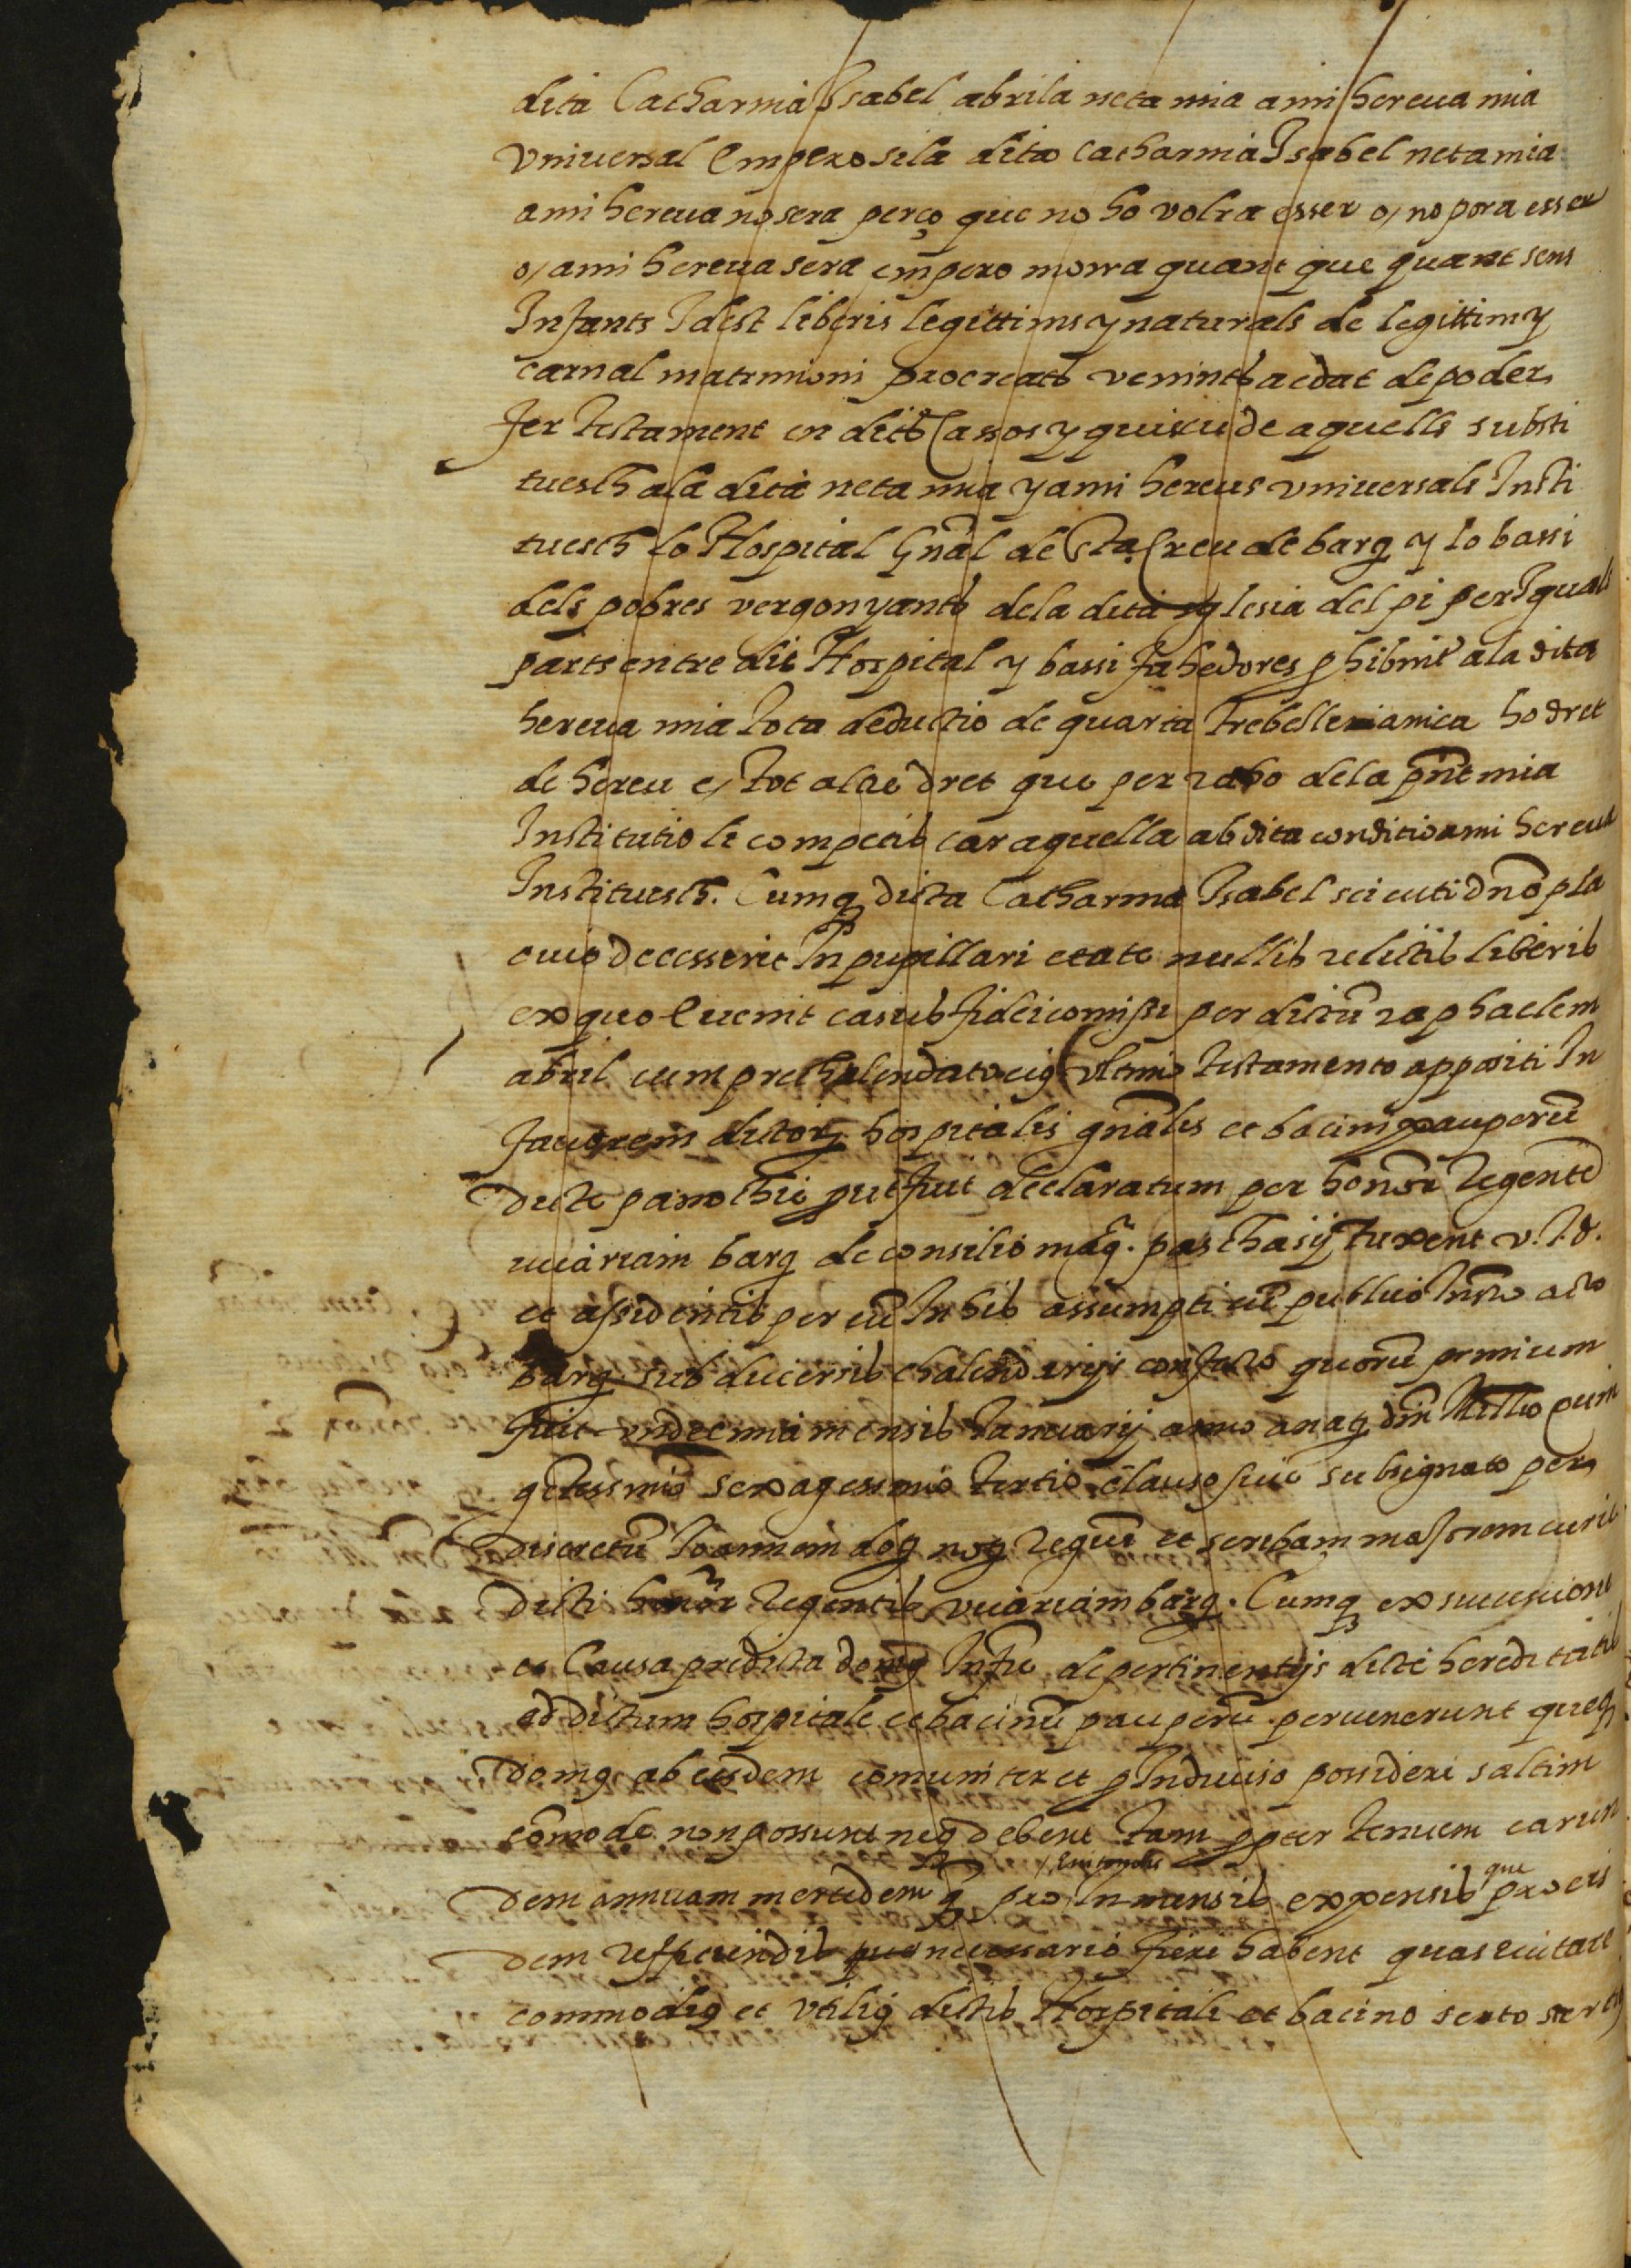 dita Catharina Isabel abrila neta mia a mi hereva mia
vniversal Empero si la dita Catharina Isabel neta mia
a mi hereva no sera perço que no ho volra esser o/ no pora esser
o/ a mi hereva sera empero morra quant que quant sens
Infants Idest liberis legittims y naturals de legittim y
carnal matrimoni procreats venints a edat de poder
fer testament en dits Cassos y quiscu de aquells substi
tuesch a la dita neta mia y a mi hereus vniversals Insti
tuesch lo Hospital Gñal de Sta Creu de barq̃ y lo bassi
dels pobres vergonyants de la dita yglesia del pi per Iguals
parts entre dit Hospital y bassi fahedores ꝓhibint a la dita
hereva mia tota deductio de quarta Trebellianica ho dret
de hereu e/ tot altre dret que per raho de la pñt mia
Institutio li competis car aquella ab dita conditio a mi hereva
Instituesch. Cumq̃ dicta Catharina Isabel sicuti dño pla
cuit decesserit In pupillari etate nullis relictis liberis
ex quo Euenit casus fideicomissi per dictũ raphaelem
abril cum prechalendato eiꝰ Vltimo testamento appositi In
fauorem dictorꝝ hospitalis gñalis et bacini pauperũ
dicte parrochie put fuit declaratum per honor̃ Regentẽ
vicariam barq̃ de consilio magci. paschasij turent v. J. d.
et assidentis per eũ In his assumpti cũ publico Instro acto
barq̃ sub diuersis chalendarijs confecto quorũ primum
fuit vndecima mensis Januarij anno a natẽ dñi Millo quin
getessimo sexagessimo tertio clauso siue subsignato per
discretũ Joannem notꝰ regiũ et scribam maiorem curie
dicti honor̃ Regentis vicariam barq̃. Cumq̃ ex successione
et Causa predicta domꝰ Infre de pertinentijs dicte hereditatis
ad dictum hospitale et bacinũ pauperũ peruenerunt queq̃
domꝰ ab eisdem comuniter et ꝓ Indiuiso possideri saltim
cõmode non possunt neq̃ debent tam ꝓpter tenuem earun
dem annuam mercedem q̃ pro Inmensis expensis que pro eis
dem refficiendis necessario fieri habent quas euitare
commodiꝰ et vtiliꝰ dictis Hospitali et bacino